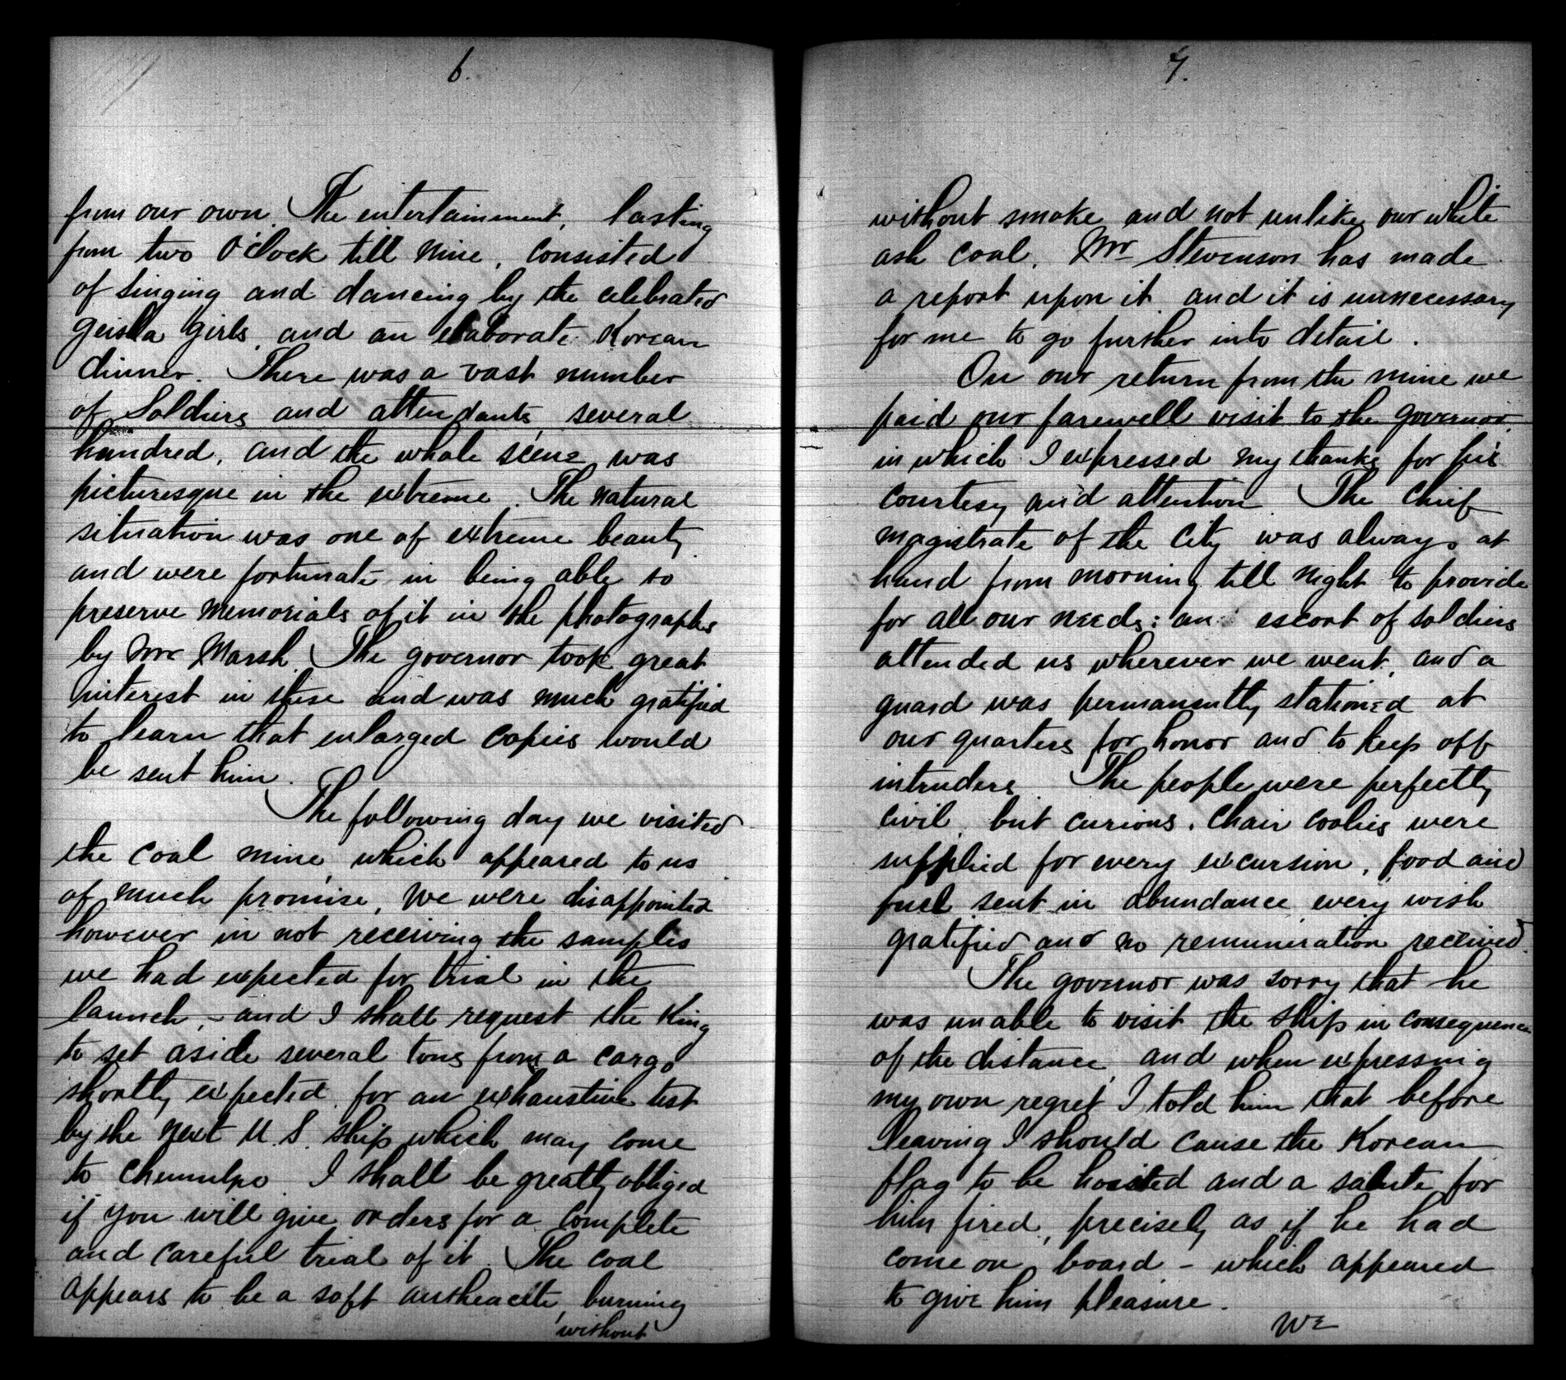 6.
from our own. The entertainment, lasting
from two O'clock till nine, consisted
of singing and dancing by the celebrated
geisha girls, and an elaborate Korean
dinner. There was a vast number
of Soldiers and attendants, several
hundred, and the whole scene was
picturesque in the extreme. The natural
situation was one of extreme beauty
and were fortunate in being able to
preserve memorials of it in the photographs
by Mr Marsh. The governor took great
interest in these and was much gratified
to learn that enlarged copies would
be sent him.
The following day we visited
the coal mine, which appeared to us
of much promise, We were disappointed
however in not receiving the samples
we had expected for trial in the
launch, - and I shall request the King
to set aside several tons from a cargo
shortly expected for an exhaustive test
by the next U. S. ship which may come
to Chemulpo. I shall be greatly obliged
if you will give orders for a complete
and careful trial of it. The coal
appears to be a soft anthracite, burning
without
7.
without smoke and not unlike our white
ash coal. Mr Stevenson has made
a report upon it and it is unnecessary
for me to go further into detail.
On our return from the mine we
paid our farewell visit to the governor,
in which I expressed my thanks for his
courtesy and attention. The Chief
magistrate of the City was always at
hand from morning till night to provide
for all our needs: an escort of soldiers
attended us wherever we went, and a
guard was permanently stationed at
our quarters for honor and to keep off
intruders. The people were perfectly
civil, but curious. Chair coolies were
supplied for every excursion, food and
fuel sent in abundance every wish
gratified and no remuneration received.
The governor was sorry that he
was unable to visit the ship in consequence
of the distance, and when expressing
my own regret I told him that before
leaving I should cause the Korean
flag to be hoisted and a salute for
him fired, precisely as if he had
come on board - which appeared
to give him pleasure.
We